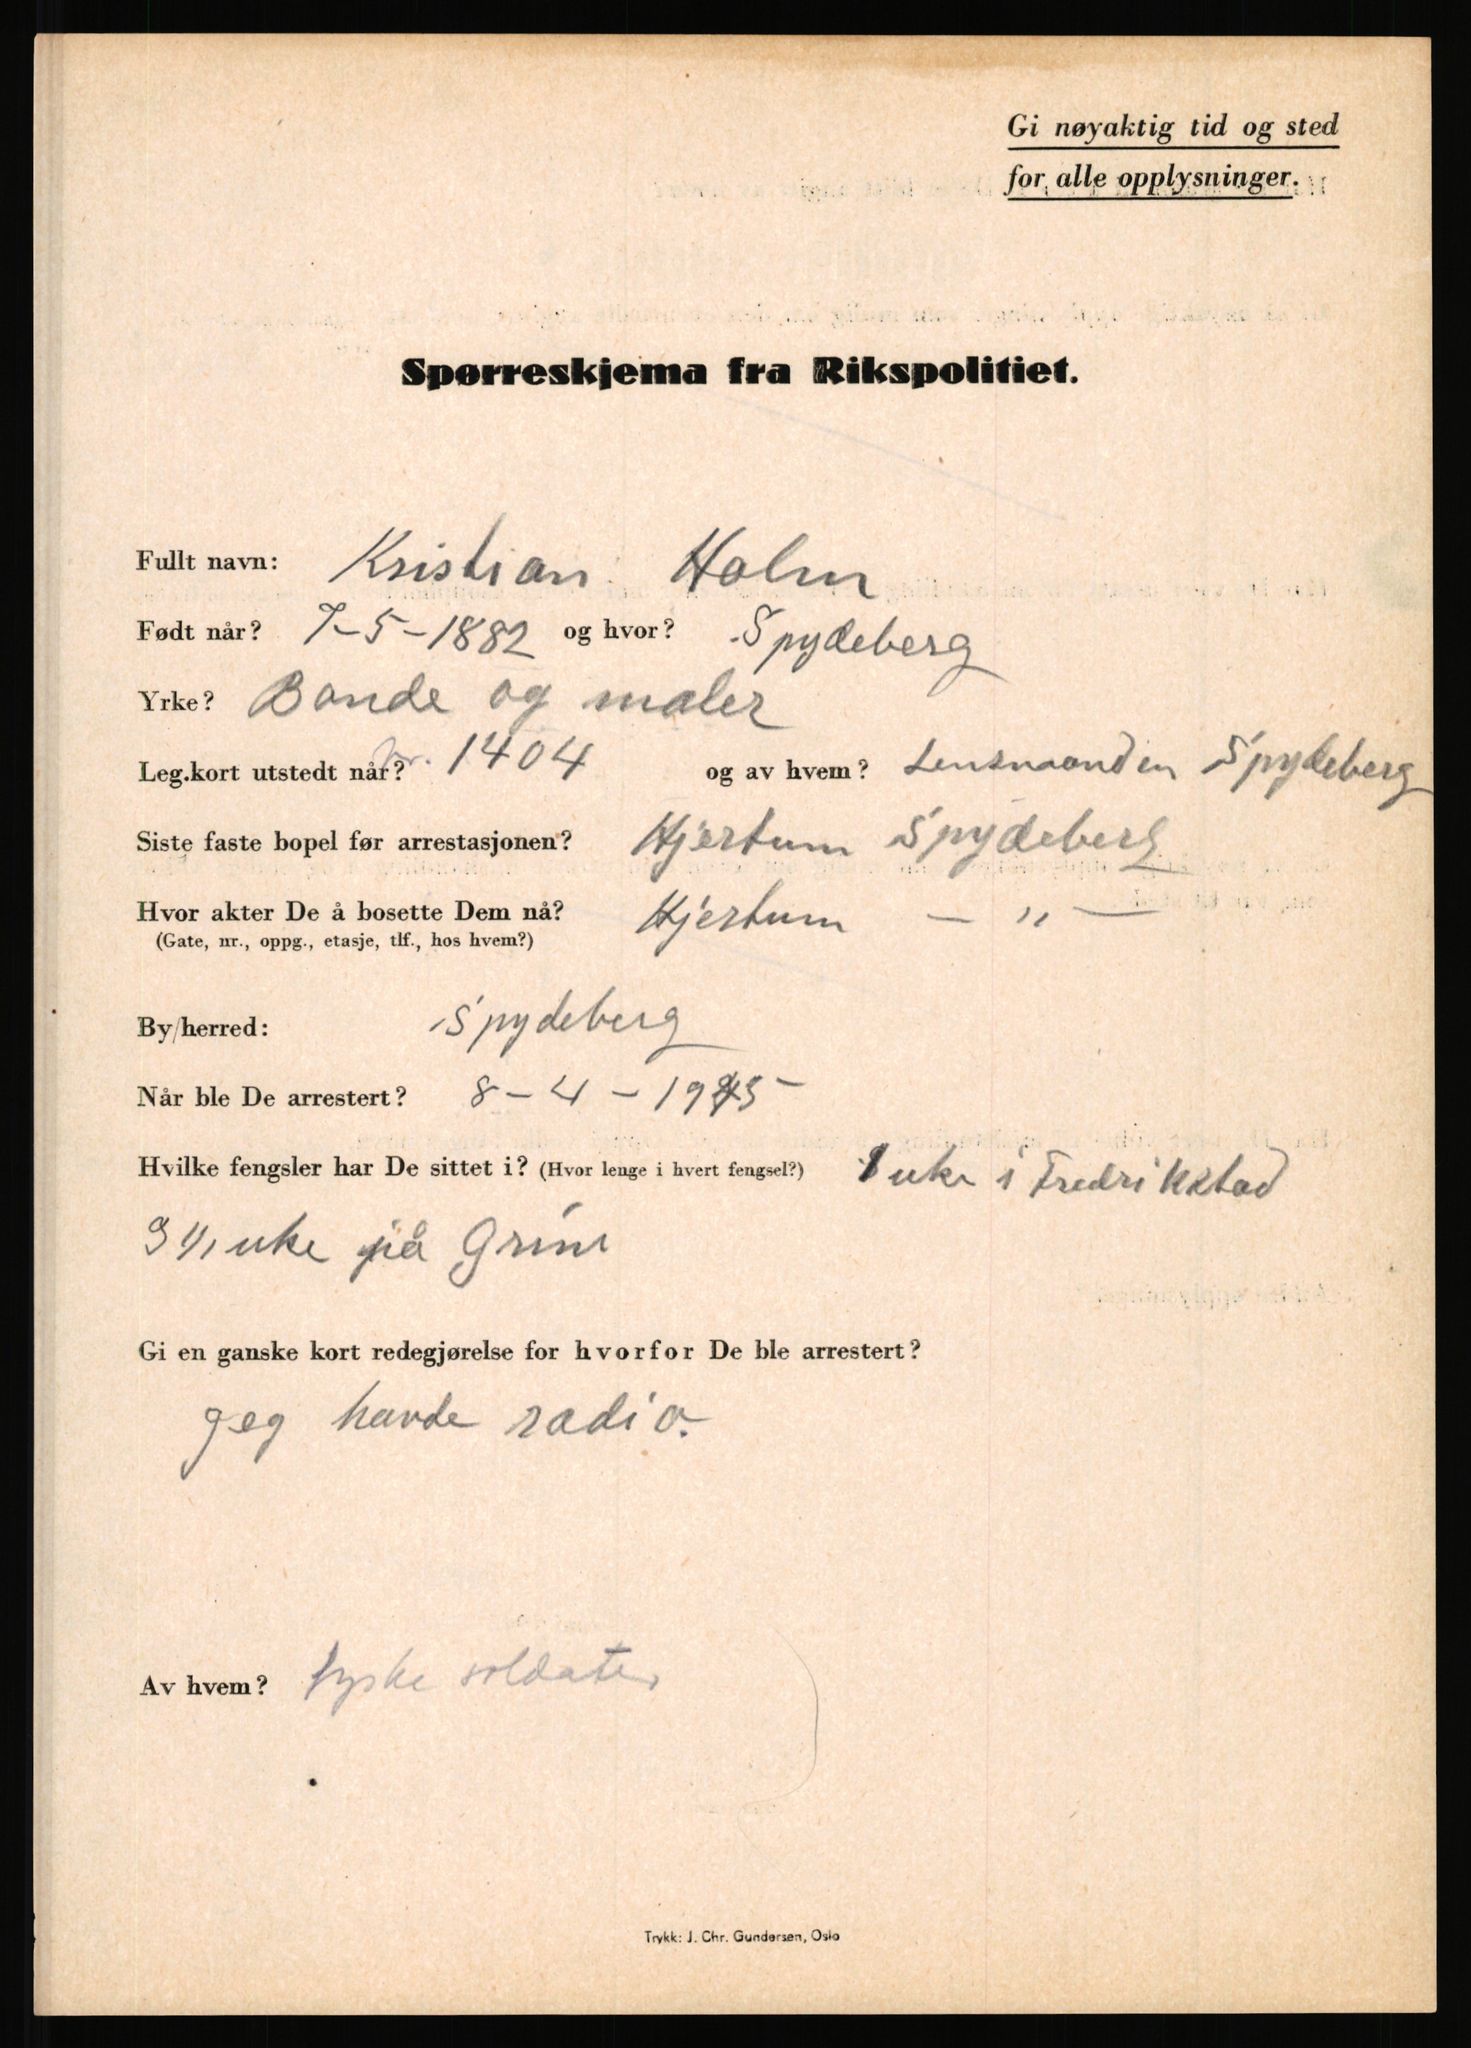 Gi nøyaktig tid og sted
for alle opplysninger.
Spørreskjema fra Rikspolitiet.
Fullt navn: Kristian Holm
Født når? 7-5-1882 og hvor? Spydeberg
Yrke? Bonde og maler
Leg.kort utstedt når? nr. 1404 og av hvem? Lensmanden Spydeberg
Siste faste bopel før arrestasjonen? Hjertum Spydeberg
Hvor akter De å bosette Dem nå? Hjertum — " —
(Gate, nr., oppg., etasje, tlf., hos hvem?)
By/herred: Spydeberg
Når ble De arrestert? 8-4-1945
Hvilke fengsler har De sittet i? (Hvor lenge i hvert fengsel?) 1 uke i Fredrikstad
uke på Grini
Gi en ganske kort redegjørelse for hvorfor De ble arrestert?
Jeg havde radio.
Av hvem? tyske soldater
Trykk: J. Chr. Gundersen, Oslo